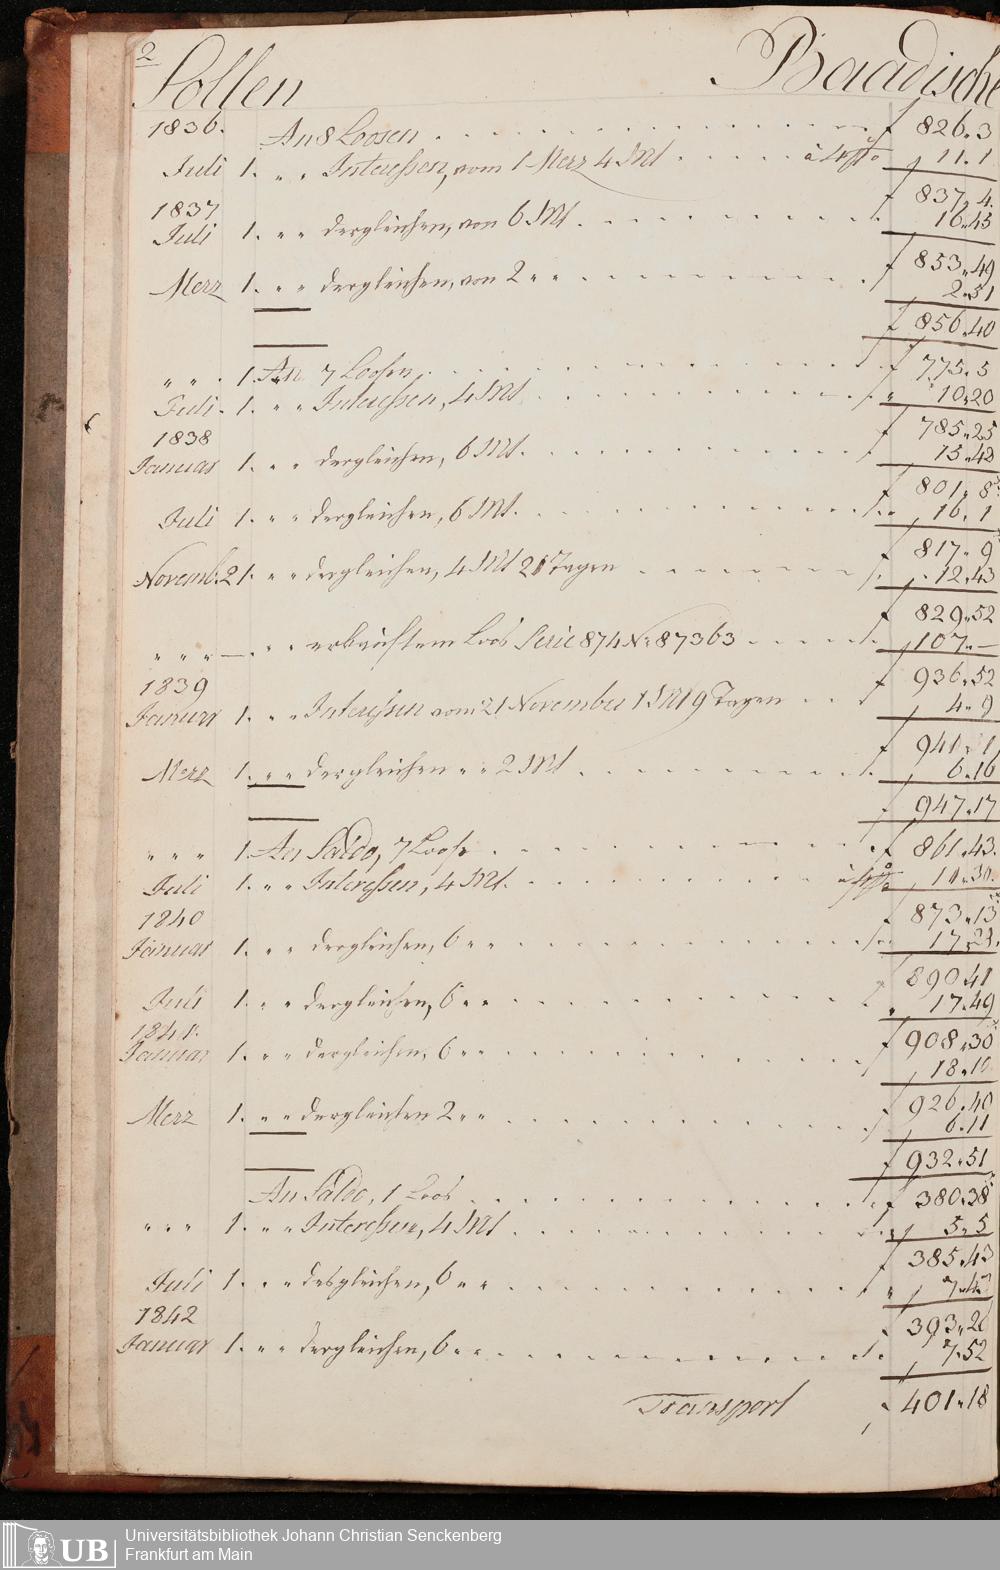 2
Sollen Baadische
1836.
An 8 Loosen f 826.3
Juli 1. " " Interessen, vom 1 Merz 4 Mt à 4 p% " 11.1
f 837.4.
1837
Juli 1. " " dergleichen, von 6 Mt. 16.45
f 853.49
Merz 1. " " dergleichen, von 2 " " 2.51
f 856.40
" " . 1. An 7 Loosen f 775.5
Juli. 1. " " Interessen, 4 Mt " 10.20
f 785.25
1838
Januar 1. " " dergleichen, 6 Mt. 15.42
f 801.8
Juli 1. " " dergleichen, 6 Mt. 16.1
f 817.9
Novemb. 21. " " dergleichen, 4 Mt 21 Tagen 12.43
f 829.52
" " " — " " erkauftem Loos Serie 874 No 87363 107.—
f 936.52
1839
Januar 1. " " Interessen vom 21 November 1 Mt 9 Tagen 4.9
f 941.1
Merz 1. " " dergleichen " " 2 Mt 6.16
f 947.17
" " " 1. An Saldo, 7 Loose f 861.43.
Juli 1. " " Interessen, 4 Mt. 11.30.
f 873.13
1840
Januar 1. " " dergleichen, 6 " " 17.28.
890.41
Juli 1. " " dergleichen, 6 " " 17.49
f 908.30
1841.
Januar 1. " " dergleichen, 6 " " 18.10
f 926.40
Merz 1. " " dergleichen 2 " " 6.11
f 932.51
An Saldo, 1 Loos f 380.38
" " " 1. " " Interessen, 4 Mt 5.5
f 385.43
Juli 1. " " desgleichen, 6 " " 7.43
393.26
1842
Januar 1. " " dergleichen, 6 " " 7.52
Transport 401.18
UB
Universitätsbibliothek Johann Christian Senckenberg
Frankfurt am Main